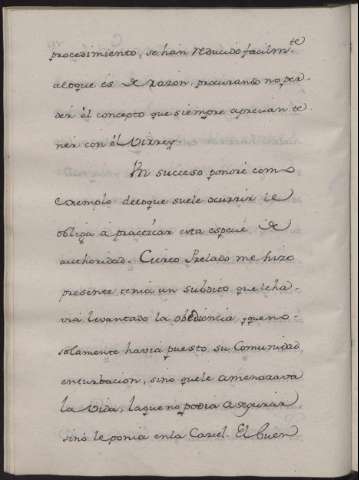 procedimiento, se han reducido facilm.te
a loque és de razon, procurando no per-
der él concepto que siempre apreçian te
ner con él Virrey.
Un successo pondré como
exemplo deloque suele ocurrir, i e
obliga á practicar esta especie de
authoridad. Cierto Prelado me hizo
presente tenia un subdito que le ha-
via levantado la obediencia, y que no-
solamente havia puesto su Comunidad
enturbacion, sino que le amenazava
la vida, laque no podia asegurar
sinó le ponia enla Carzel. El buen